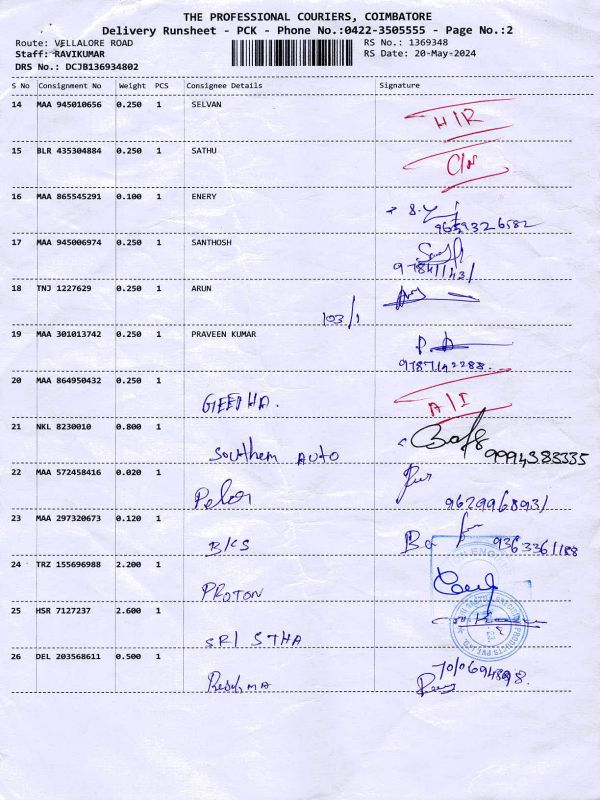 THE PROFESSIONAL COURIERS, COIMBATORE
Delivery Runsheet - PCK - Phone No.:0422-3505555 - Page No.:2
Route: VELLALORE ROAD RS No.: 1369348
Staff: RAVIKUMAR RS Date: 20-May-2024
DRS No.: DCJB136934802
S No Consignment No Weight PCS Consignee Details Signature
14 MAA 945010656 0.250 1 SELVAN
H/R
15 BLR 435304884 0.250 1 SATHU
C/N
16 MAA 865545291 0.100 1 ENERY
9659326582
17 MAA 945006974 0.250 1 SANTHOSH
18 TNJ 1227629 0.250 1 ARUN
103/1
19 MAA 301013742 0.250 1 PRAVEEN KUMAR
9787142288.
20 MAA 864950432 0.250 1
GEETHA. A/I
21 NKL 8230010 0.800 1
Southern AUTO 9994383335
22 MAA 572458416 0.020 1
9629968931
23 MAA 297320673 0.120 1
BKS 9363361188
24 TRZ 155696988 2.200 1
PROTON
25 HSR 7127237 2.600 1
SRI STHA
26 DEL 203568611 0.500 1
Reshma